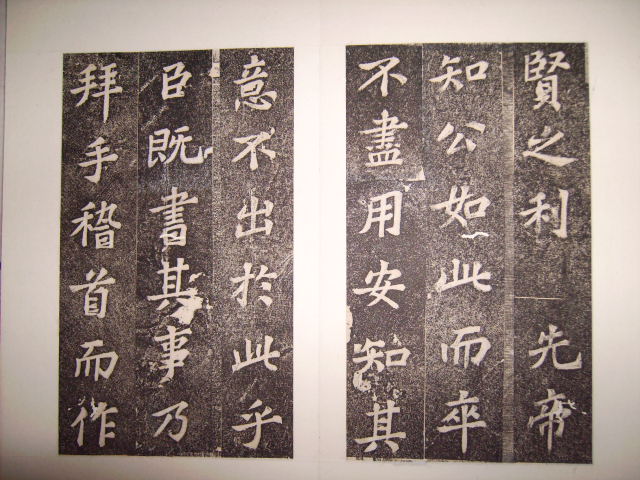 賢之利先帝
知公如此而卒
不盡用安知其
意不出於此乎
臣既書其事乃
拜手稽首而作